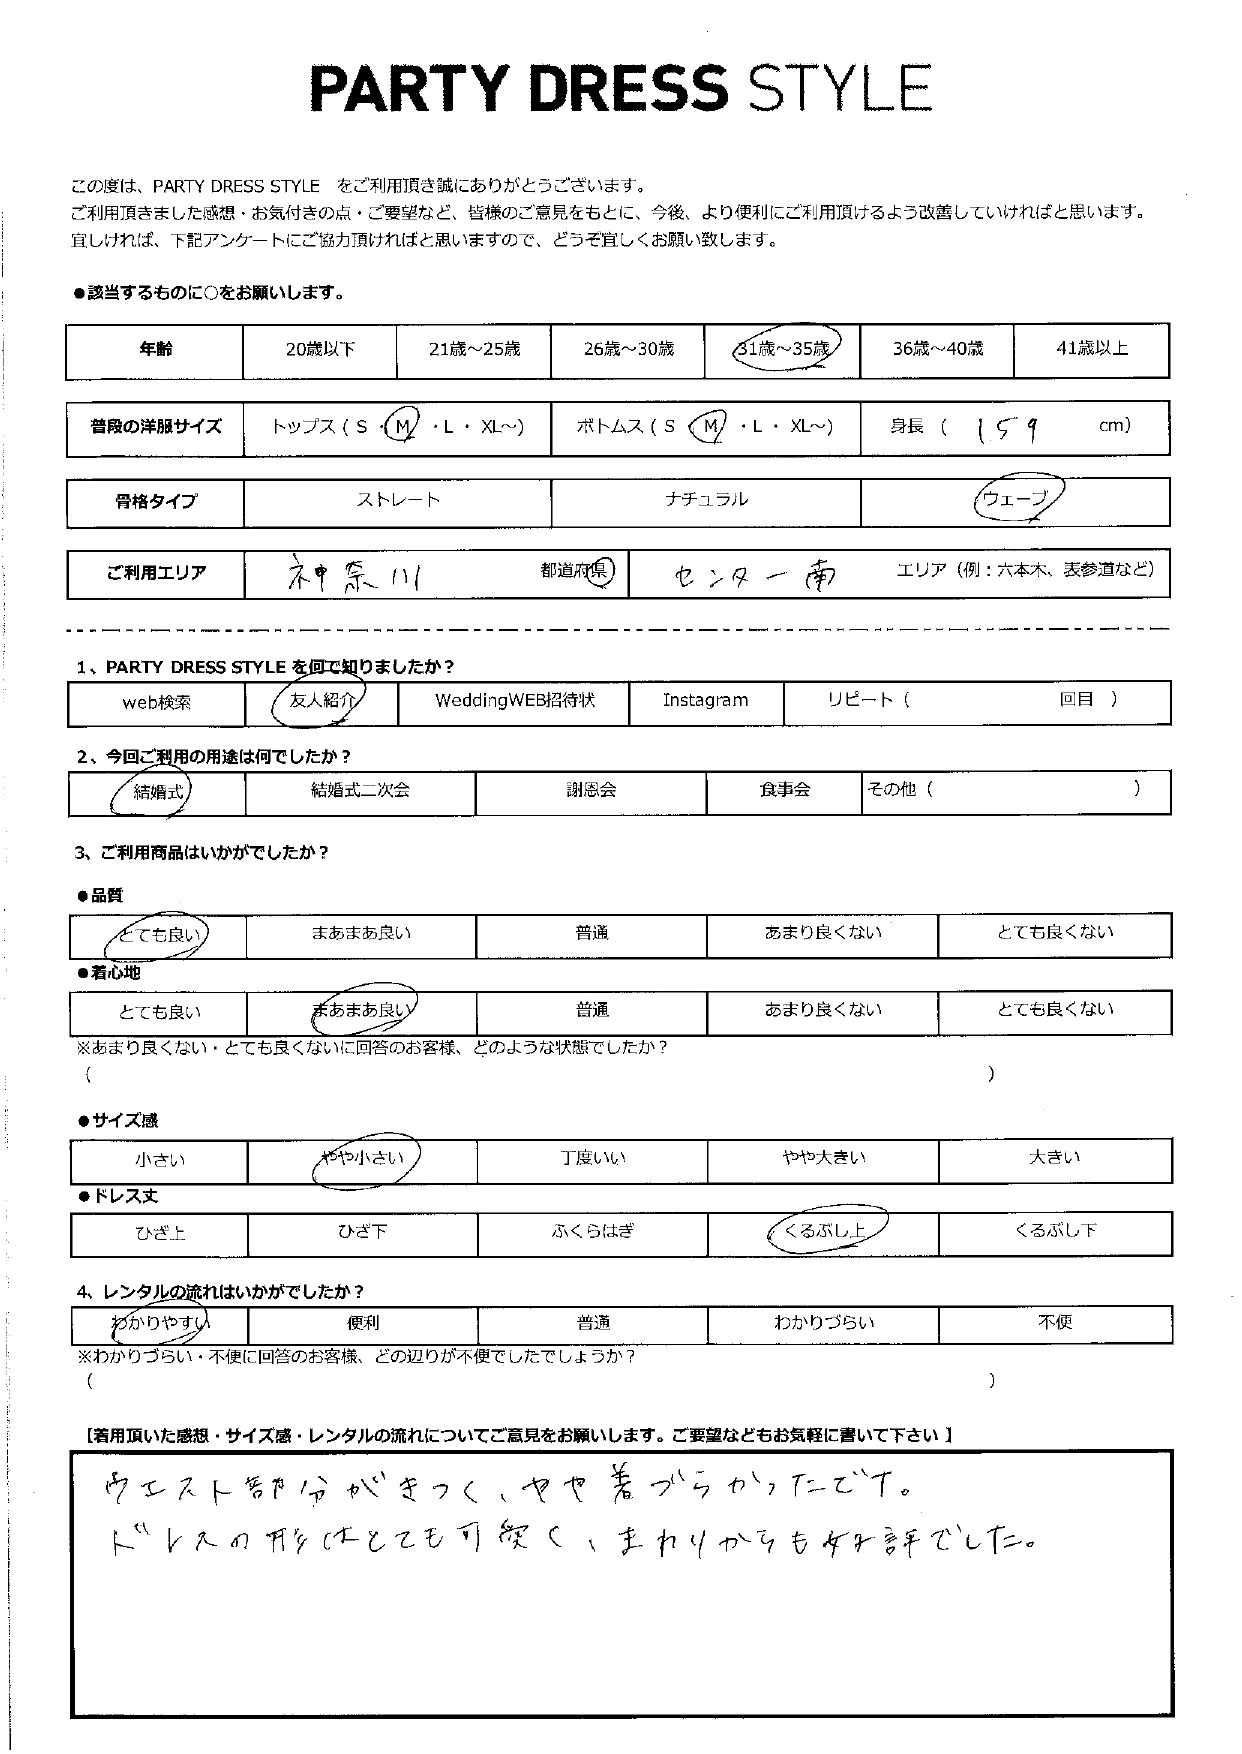 PARTY DRESS STYLE
この度は、PARTY DRESS STYLE　をご利用頂き誠にありがとうございます。
ご利用頂きました感想・お気付きの点・ご要望など、皆様のご意見をもとに、今後、より便利にご利用頂けるよう改善していければと思います。
宜しければ、下記アンケートにご協力頂ければと思いますので、どうぞ宜しくお願い致します。
●該当するものに○をお願いします。
年齢 20歳以下 21歳～25歳 26歳～30歳 31歳～35歳 36歳～40歳 41歳以上
普段の洋服サイズ トップス ( S ・ M ・ L ・ XL～) ボトムス ( S ・ M ・ L ・ XL～) 身長 ( 159 cm)
骨格タイプ ストレート ナチュラル ウェーブ
ご利用エリア 神奈川 都道府県 センター南 エリア（例：六本木、表参道など）
1、PARTY DRESS STYLE を何で知りましたか？
web検索 友人紹介 WeddingWEB招待状 Instagram リピート（ 回目 ）
2、今回ご利用の用途は何でしたか？
結婚式 結婚式二次会 謝恩会 食事会 その他（ ）
3、ご利用商品はいかがでしたか？
●品質
とても良い まあまあ良い 普通 あまり良くない とても良くない
●着心地
とても良い まあまあ良い 普通 あまり良くない とても良くない
※あまり良くない・とても良くないに回答のお客様、どのような状態でしたか？
（ ）
●サイズ感
小さい やや小さい 丁度いい やや大きい 大きい
●ドレス丈
ひざ上 ひざ下 ふくらはぎ くるぶし上 くるぶし下
4、レンタルの流れはいかがでしたか？
わかりやすい 便利 普通 わかりづらい 不便
※わかりづらい・不便に回答のお客様、どの辺りが不便でしたでしょうか？
（ ）
【着用頂いた感想・サイズ感・レンタルの流れについてご意見をお願いします。ご要望などもお気軽に書いて下さい 】
ウエスト部分がきつく、やや着づらかったです。
ドレスの形はとても可愛く、まわりからも好評でした。